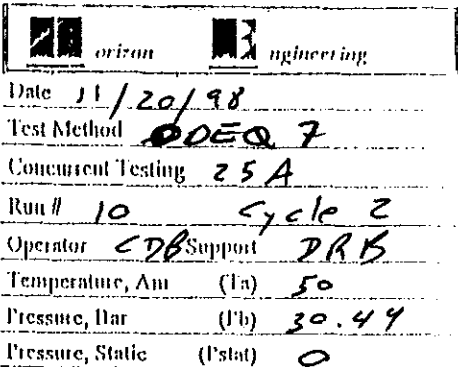 orizon ngineering
Date 11/20/98
Test Method ODEQ 7
Concurrent Testing 25A
Run # 10 Cycle 2
Operator CDB Support DRB
Temperature, Am (Ta) 50
Pressure, Bar (Pb) 30.44
Pressure, Static (Pstat) 0